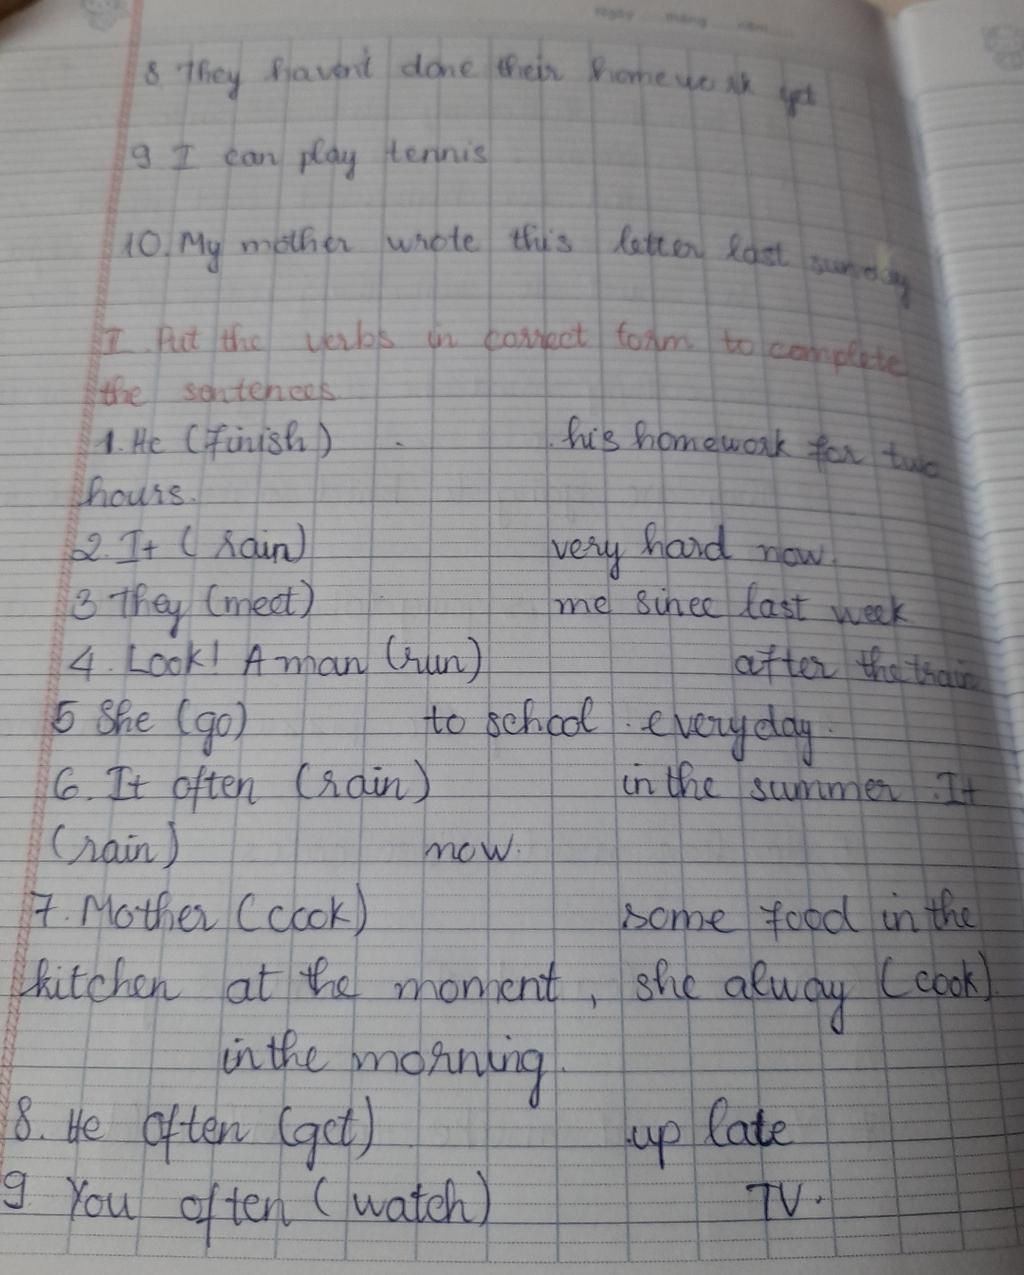 Ngày tháng năm
8 They haven't done their homework yet
9 I can play tennis
10. My mother wrote this letter last sunday
I. Put the verbs in correct form to complete
the sentences
1. He (finish) his homework for two
hours.
2. It (rain) very hard now.
3 They (meet) me since last week
4. Look! A man (run) after the train
5 She (go) to school everyday.
6. It often (rain) in the summer. It
(rain) now.
7. Mother (cook) some food in the
kitchen at the moment, she alway (cook)
in the morning.
8. He often (get) up late
9 You often (watch) TV.